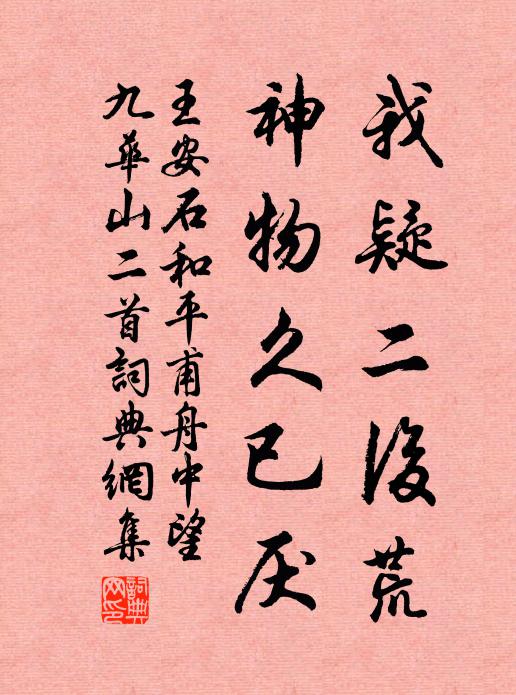 我疑二後荒
神物久已厌
王安石和平甫舟中望
九華山二首詞典網集
詞典
网印